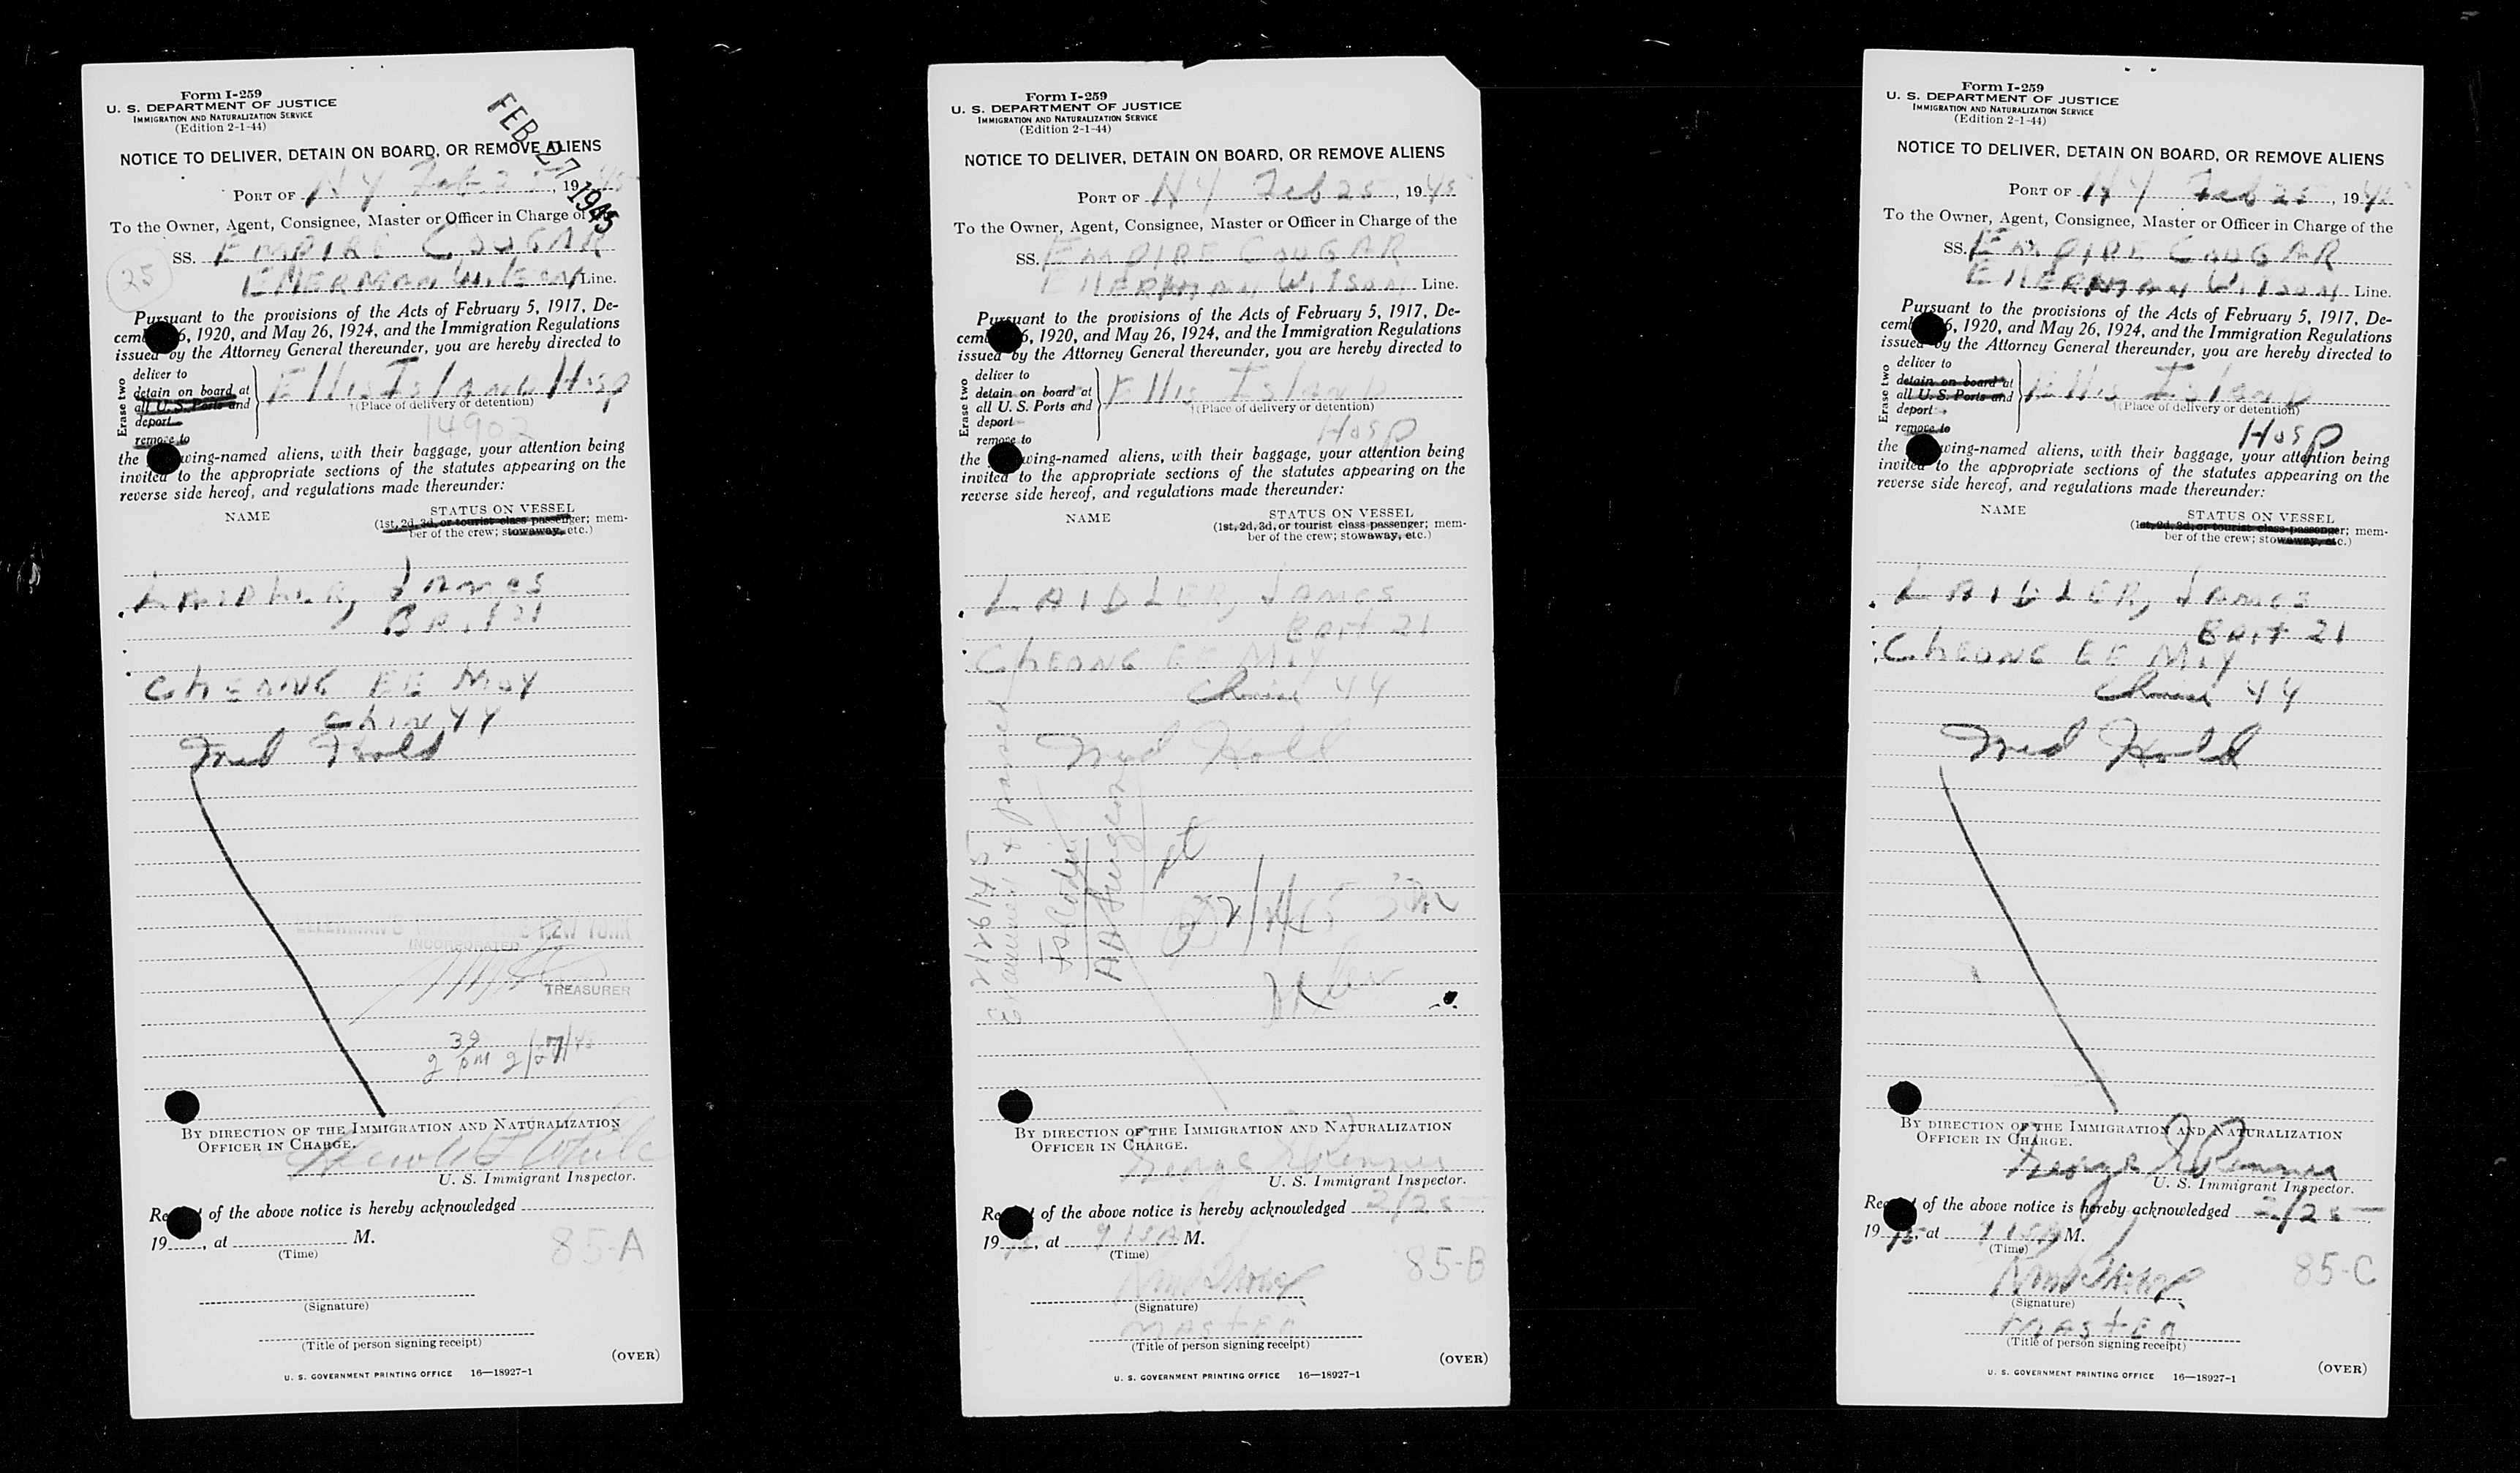 Form I-259
U. S. DEPARTMENT OF JUSTICE
IMMIGRATION AND NATURALIZATION SERVICE
(Edition 2-1-44)
FEB 27 1945
NOTICE TO DELIVER, DETAIN ON BOARD, OR REMOVE ALIENS
PORT OF NY Feb 25, 1945
To the Owner, Agent, Consignee, Master or Officer in Charge of the
SS. EMPIRE COUGAR
25
EllERMAN WilSON Line.
Pursuant to the provisions of the Acts of February 5, 1917, De-
cemb 6, 1920, and May 26, 1924, and the Immigration Regulations
issued by the Attorney General thereunder, you are hereby directed to
Erase two
deliver to
detain on board at
all U. S. Ports and
deport
remove to
Ellis Island Hosp
†(Place of delivery or detention)
14902
the wing-named aliens, with their baggage, your attention being
invited to the appropriate sections of the statutes appearing on the
reverse side hereof, and regulations made thereunder:
NAME
STATUS ON VESSEL
(1st, 2d, 3d, or tourist class passenger; mem-
ber of the crew; stowaway, etc.)
LAIDLER, James
Brit 21
CHEONG EE MOY
Chin 44
Med Hold
NEW YORK
INCORPORATED
TREASURER
2 39 pm 2/27/45
BY DIRECTION OF THE IMMIGRATION AND NATURALIZATION
OFFICER IN CHARGE.
U. S. Immigrant Inspector.
Re t of the above notice is hereby acknowledged
19 , at M.
(Time)
85-A
(Signature)
(Title of person signing receipt)
(OVER)
U. S. GOVERNMENT PRINTING OFFICE 16—18927-1
Form I-259
U. S. DEPARTMENT OF JUSTICE
IMMIGRATION AND NATURALIZATION SERVICE
(Edition 2-1-44)
NOTICE TO DELIVER, DETAIN ON BOARD, OR REMOVE ALIENS
PORT OF NY Feb 25, 1945
To the Owner, Agent, Consignee, Master or Officer in Charge of the
SS. EMPIRE COUGAR
EllERMAN WilSON Line.
Pursuant to the provisions of the Acts of February 5, 1917, De-
cemb 6, 1920, and May 26, 1924, and the Immigration Regulations
issued by the Attorney General thereunder, you are hereby directed to
Erase two
deliver to
detain on board at
all U. S. Ports and
deport
remove to
Ellis Island
†(Place of delivery or detention)
Hosp
the wing-named aliens, with their baggage, your attention being
invited to the appropriate sections of the statutes appearing on the
reverse side hereof, and regulations made thereunder:
NAME
STATUS ON VESSEL
(1st, 2d, 3d, or tourist class passenger; mem-
ber of the crew; stowaway, etc.)
LAIDLER, James
Brit 21
CHEONG EE MOY
Chinese 44
Med Hold
2/26/45
Examined & passed
BY DIRECTION OF THE IMMIGRATION AND NATURALIZATION
OFFICER IN CHARGE.
George
U. S. Immigrant Inspector.
Re t of the above notice is hereby acknowledged 2/25
1945, at 9 15 A M.
(Time)
85-B
(Signature)
MASTER
(Title of person signing receipt)
(OVER)
U. S. GOVERNMENT PRINTING OFFICE 16—18927-1
Form I-259
U. S. DEPARTMENT OF JUSTICE
IMMIGRATION AND NATURALIZATION SERVICE
(Edition 2-1-44)
NOTICE TO DELIVER, DETAIN ON BOARD, OR REMOVE ALIENS
PORT OF NY Feb 25, 1945
To the Owner, Agent, Consignee, Master or Officer in Charge of the
SS. EMPIRE COUGAR
EllERMAN WilSON Line.
Pursuant to the provisions of the Acts of February 5, 1917, De-
cemb 6, 1920, and May 26, 1924, and the Immigration Regulations
issued by the Attorney General thereunder, you are hereby directed to
Erase two
deliver to
detain on board at
all U. S. Ports and
deport
remove to
Ellis Island
†(Place of delivery or detention)
Hosp
the wing-named aliens, with their baggage, your attention being
invited to the appropriate sections of the statutes appearing on the
reverse side hereof, and regulations made thereunder:
NAME
STATUS ON VESSEL
(1st, 2d, 3d, or tourist class passenger; mem-
ber of the crew; stowaway, etc.)
LAIDLER, James
Brit 21
CHEONG EE MOY
Chinese 44
Med Hold
BY DIRECTION OF THE IMMIGRATION AND NATURALIZATION
OFFICER IN CHARGE.
George
U. S. Immigrant Inspector.
Re t of the above notice is hereby acknowledged 2/25
1945, at 9 15 A M.
(Time)
85-C
(Signature)
MASTER
(Title of person signing receipt)
(OVER)
U. S. GOVERNMENT PRINTING OFFICE 16—18927-1